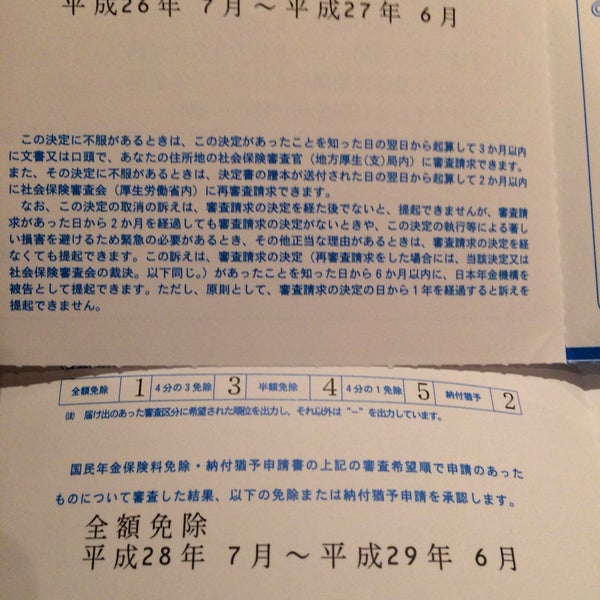 平成26年 7月～平成27年 6月
この決定に不服があるときは、この決定があったことを知った日の翌日から起算して3か月以内
に文書又は口頭で、あなたの住所地の社会保険審査官（地方厚生(支)局内）に審査請求できます。
また、その決定に不服があるときは、決定書の謄本が送付された日の翌日から起算して2か月以内
に社会保険審査会（厚生労働省内）に再審査請求できます。
なお、この決定の取消の訴えは、審査請求の決定を経た後でないと、提起できませんが、審査請
求があった日から2か月を経過しても審査請求の決定がないときや、この決定の執行等による著し
い損害を避けるため緊急の必要があるとき、その他正当な理由があるときは、審査請求の決定を経
なくても提起できます。この訴えは、審査請求の決定（再審査請求をした場合には、当該決定又は
社会保険審査会の裁決。以下同じ。）があったことを知った日から6か月以内に、日本年金機構を
被告として提起できます。ただし、原則として、審査請求の決定の日から1年を経過すると訴えを
提起できません。
全額免除 1 4分の3免除 3 半額免除 4 4分の1免除 5 納付猶予 2
(注) 届け出のあった審査区分に希望された順位を出力し、それ以外は“－”を出力しています。
国民年金保険料免除・納付猶予申請書の上記の審査希望順で申請のあった
ものについて審査した結果、以下の免除または納付猶予申請を承認します。
全額免除
平成28年 7月～平成29年 6月